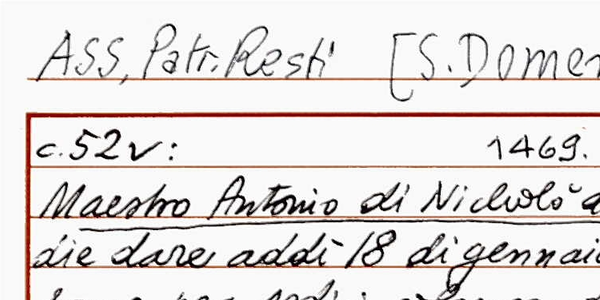 ASS, Patr. Resti [S. Domen
c. 52v: 1469.
Maestro Antonio di Nicholò d
die dare addì 18 di gennaio